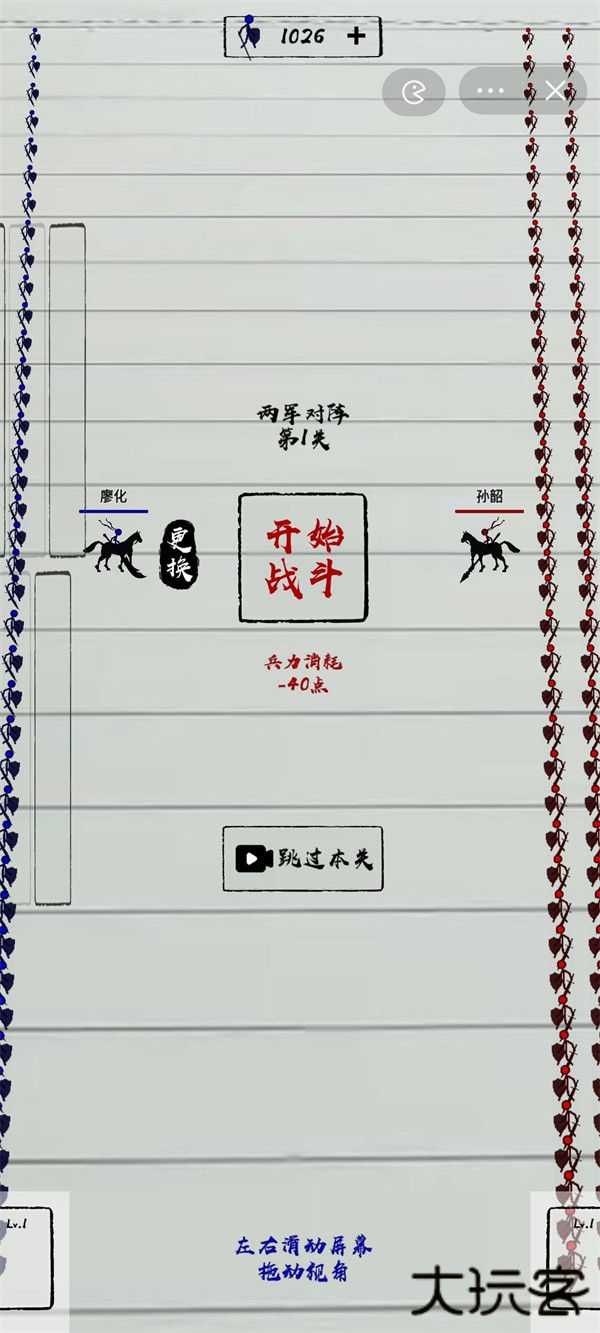 1026 +
两军对阵
第1关
廖化
孙韶
更
换
开始
战斗
兵力消耗
-40点
跳过本关
Lv.1
Lv.1
左右滑动屏幕
拖动视角
大玩客